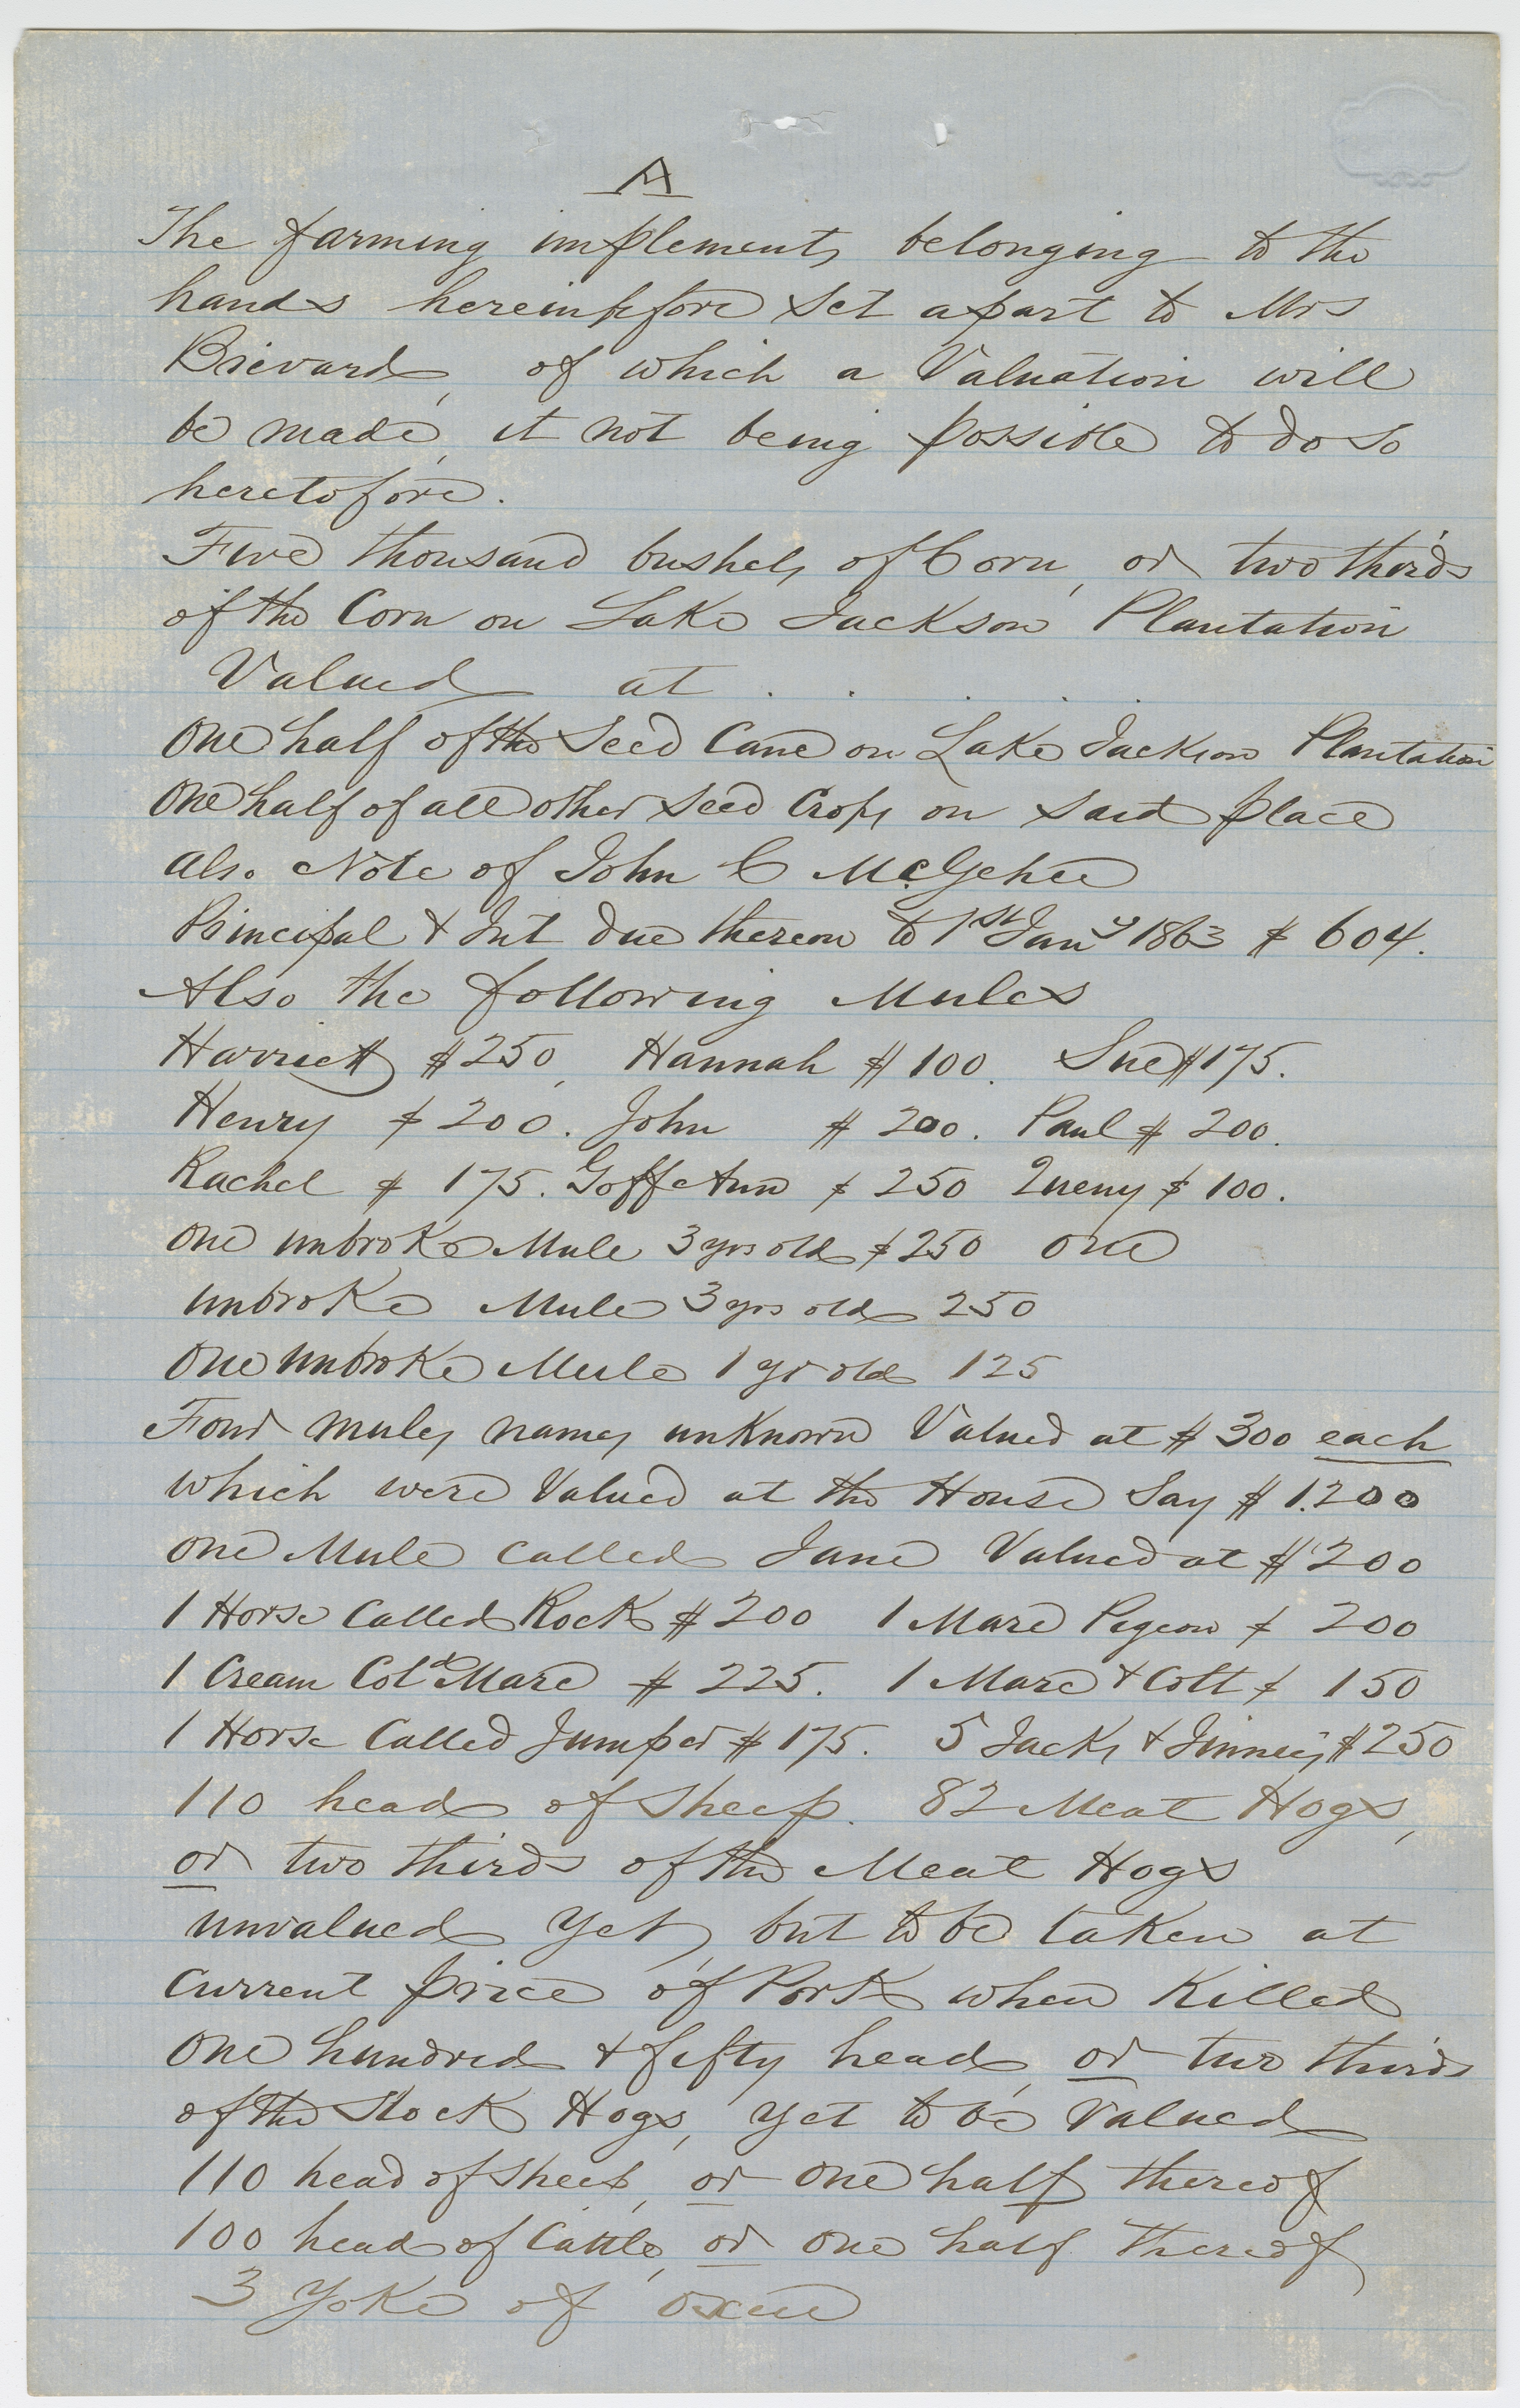 A
The farming implements belonging to the
hands hereinbefore set apart to Mrs
Brevard, of which a Valuation will
be made, it not being possible to do so
heretofore.
Five thousand bushels of Corn, or two thirds
of the Corn on Lake Jackson Plantation
Valued at . . . . .
One half of the Seed Cane on Lake Jackson Plantation
One half of all other seed Crops on said place
also Note of John C McGehee
Principal & Int due thereon to 1st Jany 1863 $ 604.
Also the following Mules
Harriett $250, Hannah $100. Sue $175.
Henry $200. John $200. Paul $200.
Rachel $175. Goffe Ann $250 Queny $100.
One unbroke Mule 3 yrs old $250 One
unbroke Mule 3 yrs old 250
One unbroke Mule 1 yr old 125
Four mules names unknown Valued at $300 each
which were Valued at the House Say $1.200
One Mule called Jane Valued at $200
1 Horse Called Rock $200 1 Mare Pigeon $200
1 Cream Cold Mare $225. 1 Mare & Colt $150
1 Horse Called Jumper $175. 5 Jacks & Jinneys $250
110 head of Sheep. 82 Meat Hogs,
or two thirds of the Meat Hogs
unvalued yet, but to be taken at
current price of Pork when Killed
One hundred & fifty head, or two thirds
of the Stock Hogs, yet to be Valued
110 head of sheep, or one half thereof
100 head of Cattle, or one half thereof
3 Yoke of oxen